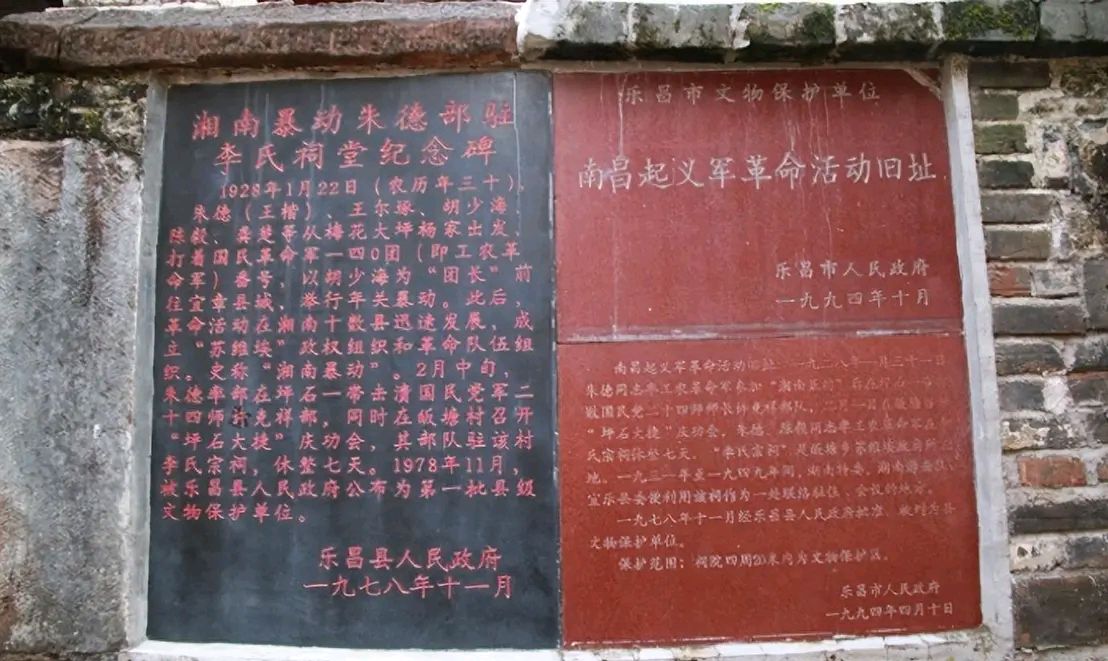 湘南暴动朱德部驻
李氏祠堂纪念碑
1928年1月22日（农历年三十），
朱德（王楷）、王尔琢、胡少海、
陈毅、龚楚等从梅花大坪杨家出发、
打着国民革命军一四0团（即工农革
命军）番号，以胡少海为“团长”前
往宜章县城，举行年关暴动。此后，
革命活动在湘南十数县迅速发展，成
立“苏维埃”政权组织和革命队伍组
织。史称“湘南暴动”。2月中旬，
朱德率部在坪石一带击溃国民党军二
十四师许克祥部，同时在皈塘村召开
“坪石大捷”庆功会，其部队驻该村
李氏宗祠，休整七天。1978年11月，
被乐昌县人民政府公布为第一批县级
文物保护单位。
乐昌县人民政府
一九七八年十一月
乐昌市文物保护单位
南昌起义军革命活动旧址
乐昌市人民政府
一九九四年十月
南昌起义军革命活动旧址，一九二八年一月三十一日
朱德同志率工农革命军参加“湘南
敌国民党二十四师师长许克祥部队，
“坪石大捷”庆功会，朱德、陈毅同志率工农革命军在
氏宗祠休整七天。“李氏宗祠”是皈塘乡苏维埃政府所
地。一九三一年至一九四九年间，湖南特委、湖南游击队
宜乐县委便利用该祠作为一处联络驻住、会议的地方。
一九七八年十一月经乐昌县人民政府批准、被列为县
文物保护单位。
保护范围：祠院四周20米内为文物保护区。
乐昌市人民政府
一九九四年四月十日